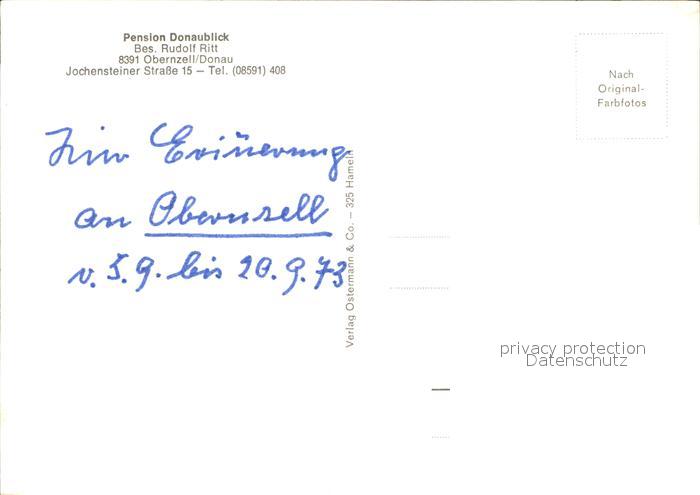 Pension Donaublick
Bes. Rudolf Ritt
8391 Obernzell/Donau
Jochensteiner Straße 15 — Tel. (08591) 408
Nach
Original-
Farbfotos
Zur Erinnerung
an Obernzell
v. 5.9. bis 20.9.73
Verlag Ostermann & Co. — 325 Hameln
privacy protection
Datenschutz